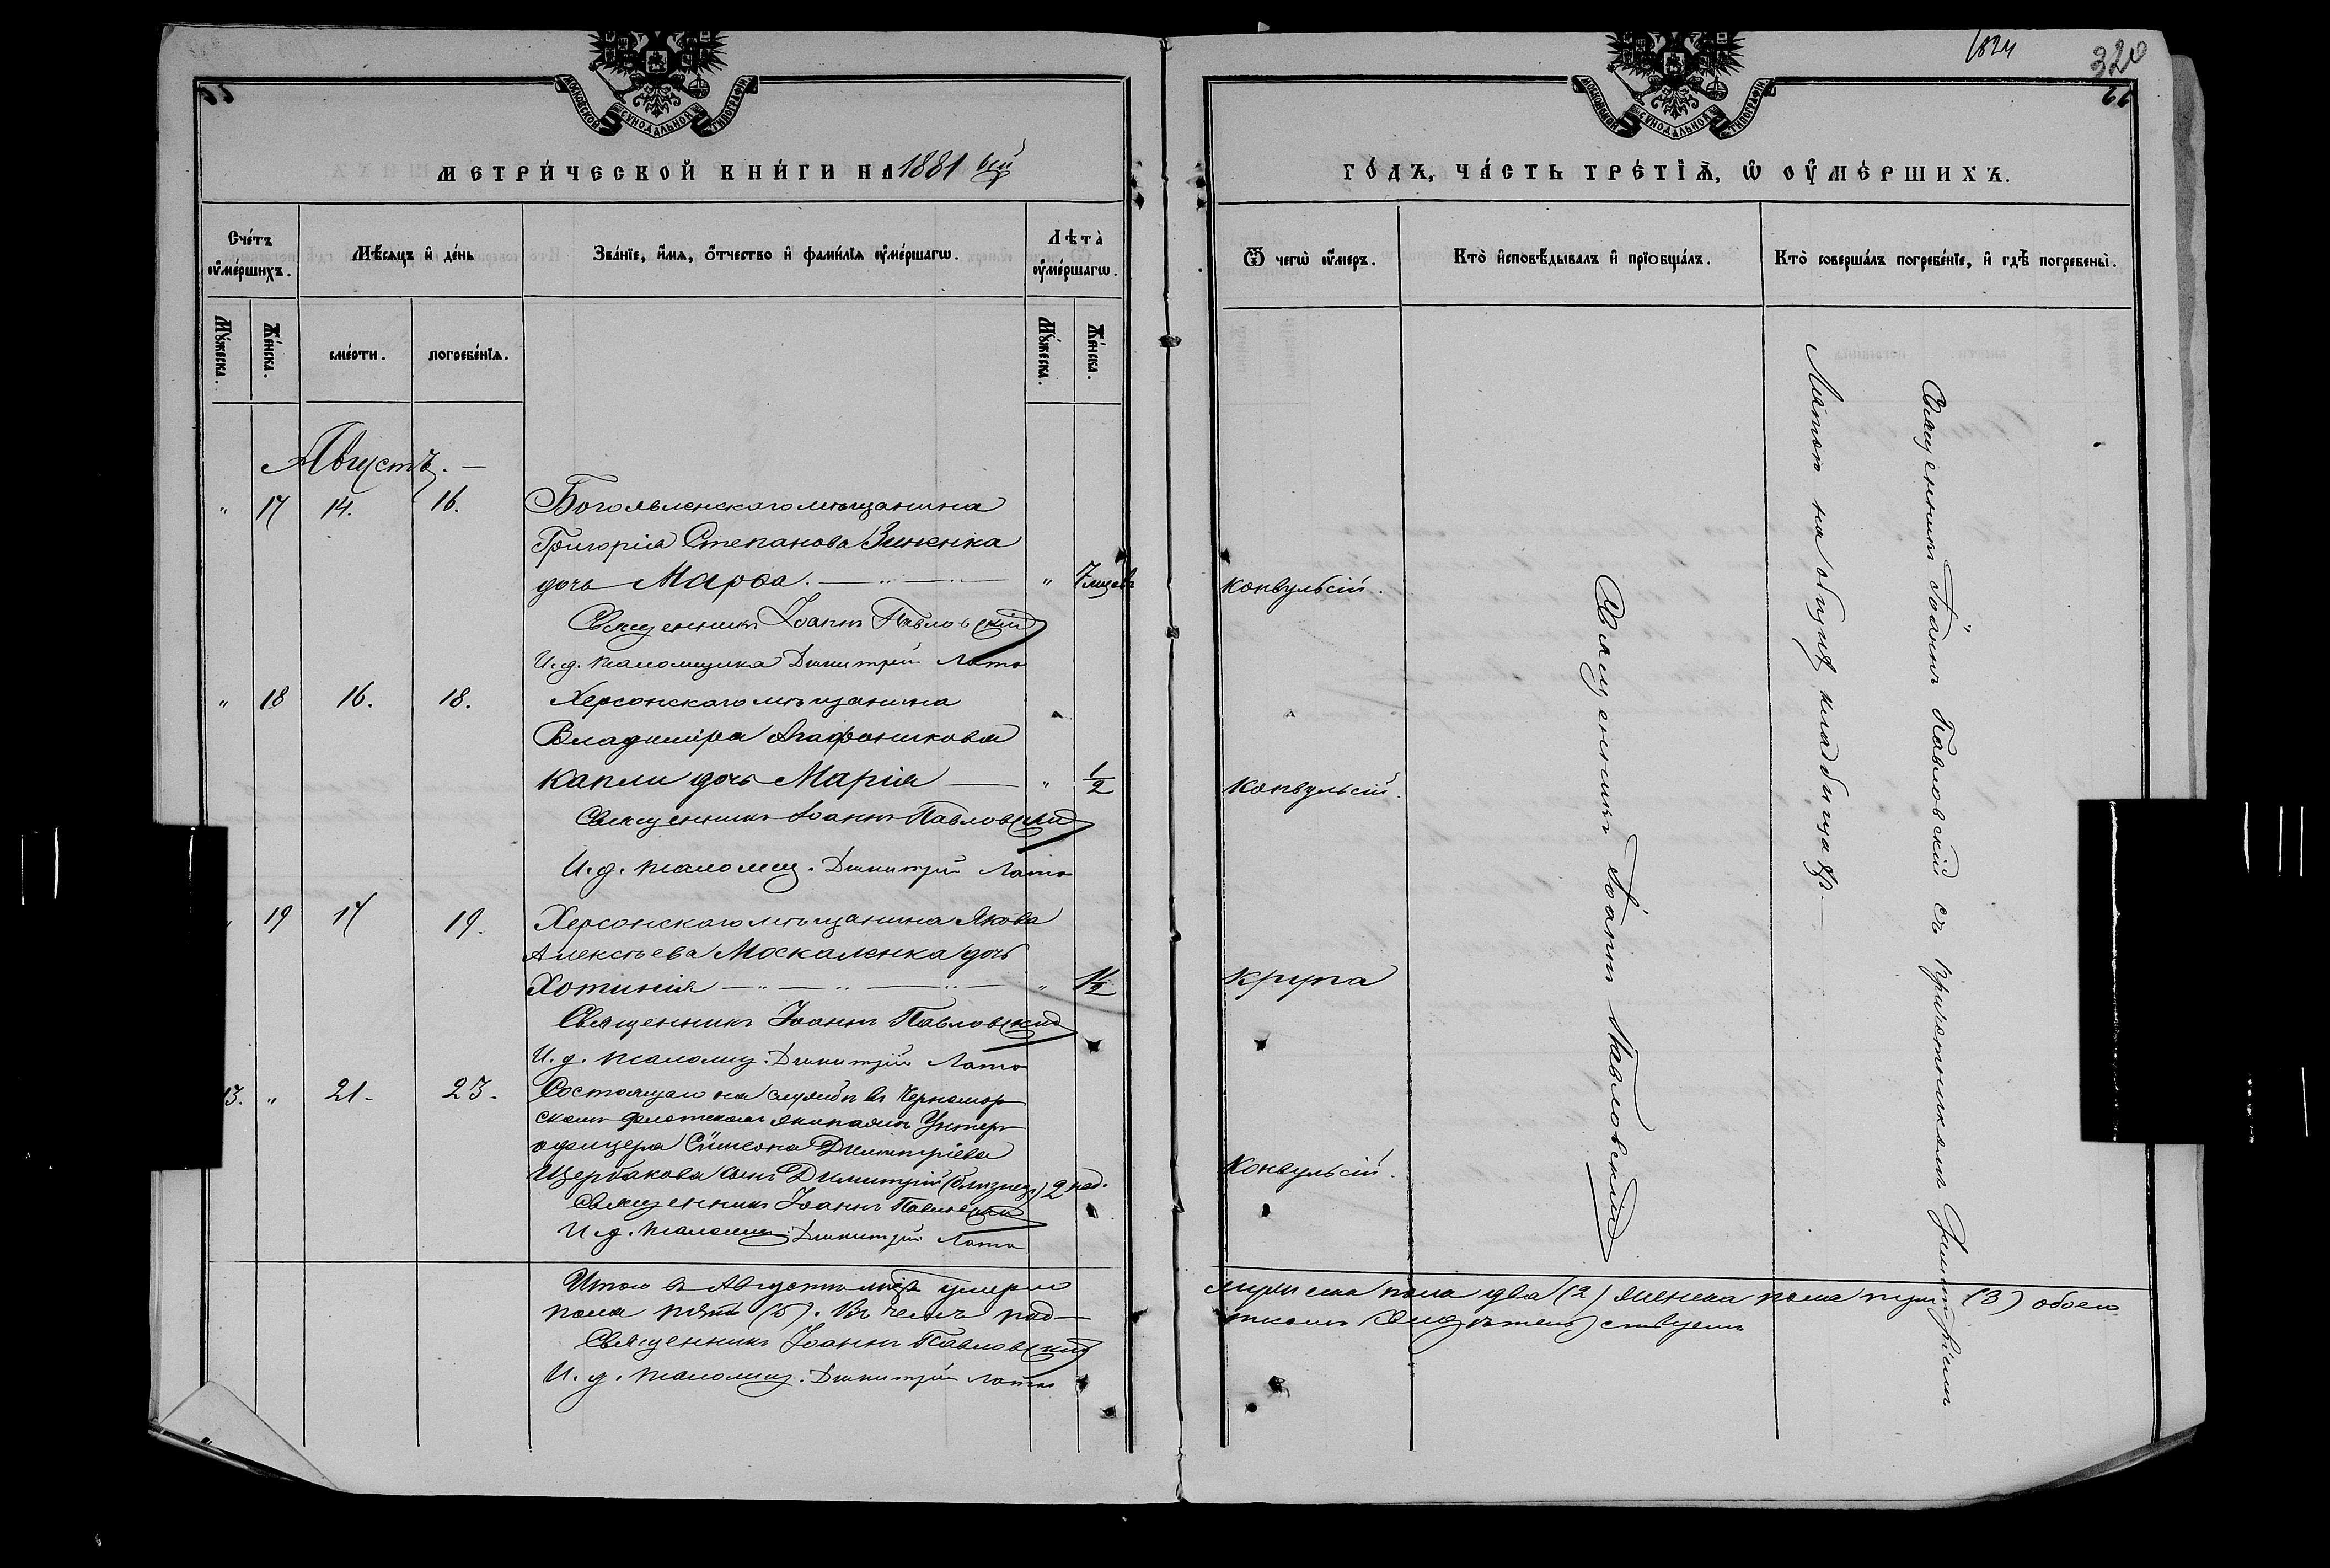 55
МОСКОВСКОЙ СѴНОДАЛЬНОЙ ТИПОГРАФІИ
МЕТРИ́ЧЕСКОЙ КНИ́ГИ НА 1881 ый
Сче́тъ ᲂу҆ме́ршихъ.
Мѣ́сяцъ и҆ де́нь
Зва́нїе, и҆́мѧ, ѻ҆́тчество и҆ фами́лїѧ ᲂу҆ме́ршагѡ.
Лѣта̀ ᲂу҆ме́ршагѡ.
Мꙋ́жеска.
Же́нска.
сме́рти.
погребе́нїѧ.
Мꙋ́жеска.
Же́нска.
Августъ. —
" 17 14. 16. Богоявленскаго мѣщанина
Григорія Степанова Зиненка
дочь Марѳа. — " — " 7 мцевъ
Священникъ Іоаннъ Павловскій
И. д. псаломщика Димитрій Лото
" 18 16. 18. Херсонскаго мѣщанина
Владиміра Агафоникова
Капли дочь Марія — " 1/2
Священникъ Іоаннъ Павловскій
И. д. псаломщ. Димитрій Лото
" 19 17 19. Херсонскаго мѣщанина Якова
Алексѣева Москаленка дочь
Хотинія — " — " — " — " 1 1/2
Священникъ Іоаннъ Павловскій
И. д. псаломщ. Димитрій Лото
13. " 21. 23. Состоящаго на службѣ въ Черномор
скомъ флотскомъ экипажѣ Унтеръ
офицера Сѵмеона Димитріева
Щербакова сынъ Димитрій (близнецъ) 2 нед.
Священникъ Іоаннъ Павловскій
И. д. псаломщ. Димитрій Лото
Итого въ Августѣ мцѣ умерло
пола пять (5). Въ чемъ под—
Священникъ Іоаннъ Павловскій
И. д. псаломщ. Димитрій Лото
320
66
МОСКОВСКОЙ СѴНОДАЛЬНОЙ ТИПОГРАФІИ
ГО́ДЪ, ЧА́СТЬ ТРЕ́ТЇѦ, Ѡ҆ ОУ҆МЕ́РШИХЪ.
Ѿ чегѡ̀ ᲂу҆́меръ.
Кто̀ и҆сповѣ́дывалъ и҆ прїобща́лъ.
Кто̀ соверша́лъ погребе́нїе, и҆ гдѣ̀ погребены̀.
Конвульсій.
Конвульсій.
Крупа
Конвульсій.
Священникъ Іоаннъ Павловскій
Священникъ Іоаннъ Павловскій съ причетникомъ Димитріемъ
Лотою на общемъ кладбищѣ. —
мужеска пола два (2) женска пола три (3) обоего
писомъ свидѣтельствуемъ